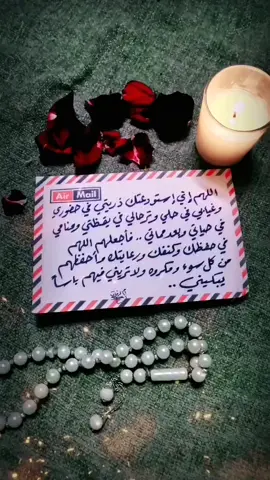 Air Mail
اللهم إني استودعتك ذريتي في حضوري
وغيابي في حلي وترحالي في يقظتي ومنامي
في حياتي وبعد مماتي .. فاجعلهم اللهم
في حفظك وكنفك ورعايتك فاحفظهم
من كل سوء ومكروه ولا تريني فيهم باسا
يبكيني ..